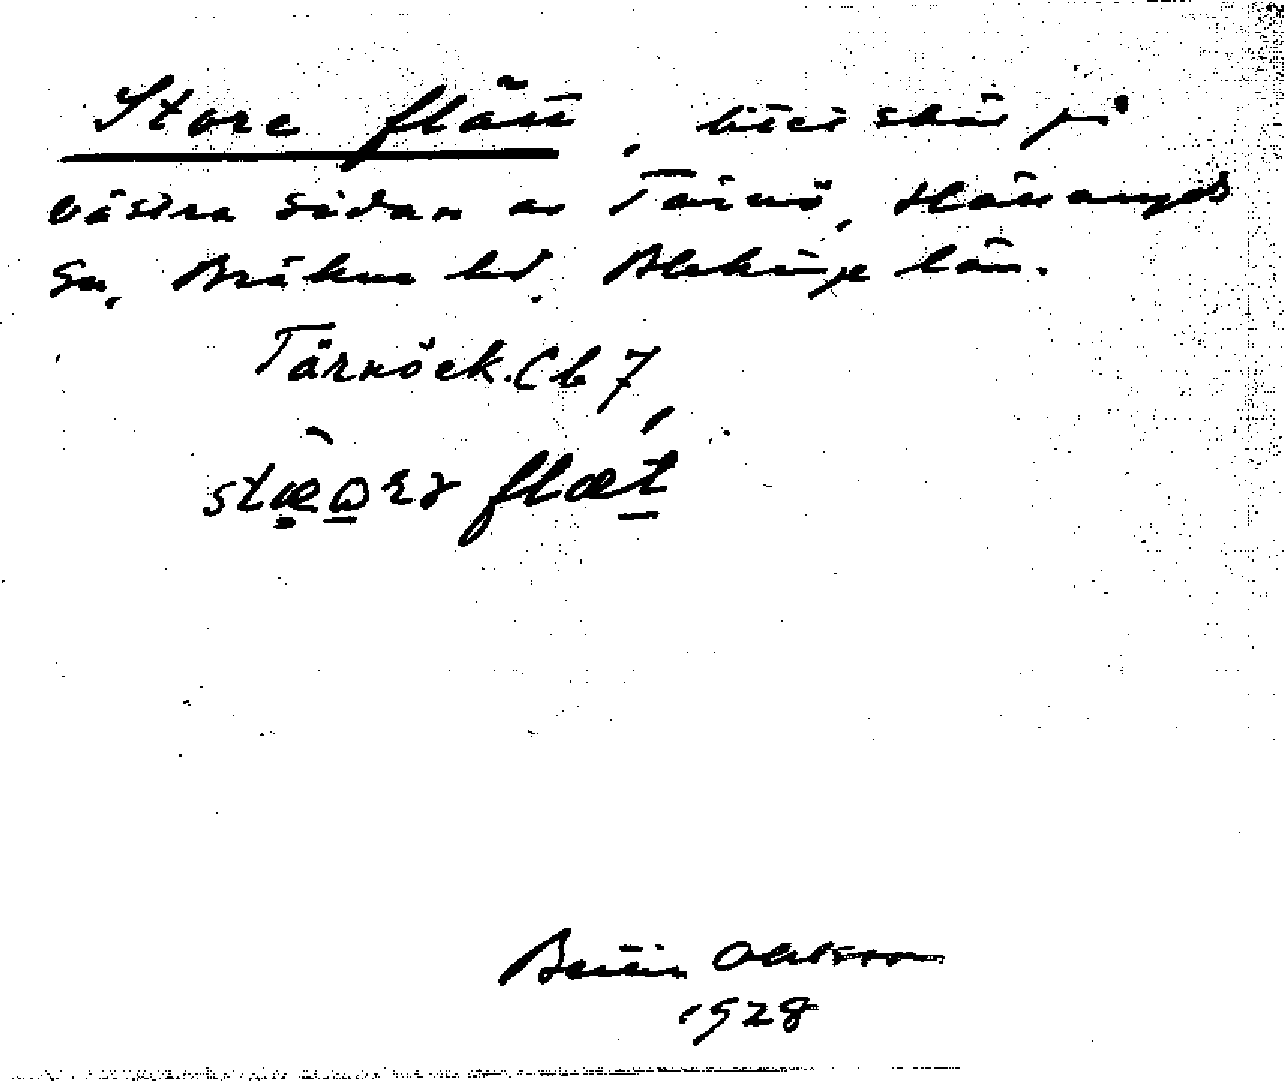 Store flätt, litet skär på
västra sidan av Tärnö, Hällaryds
sn, Bräkne hd, Blekinge län.
Tärnö ek. Cb 7
flæt
Ohlsson
1928